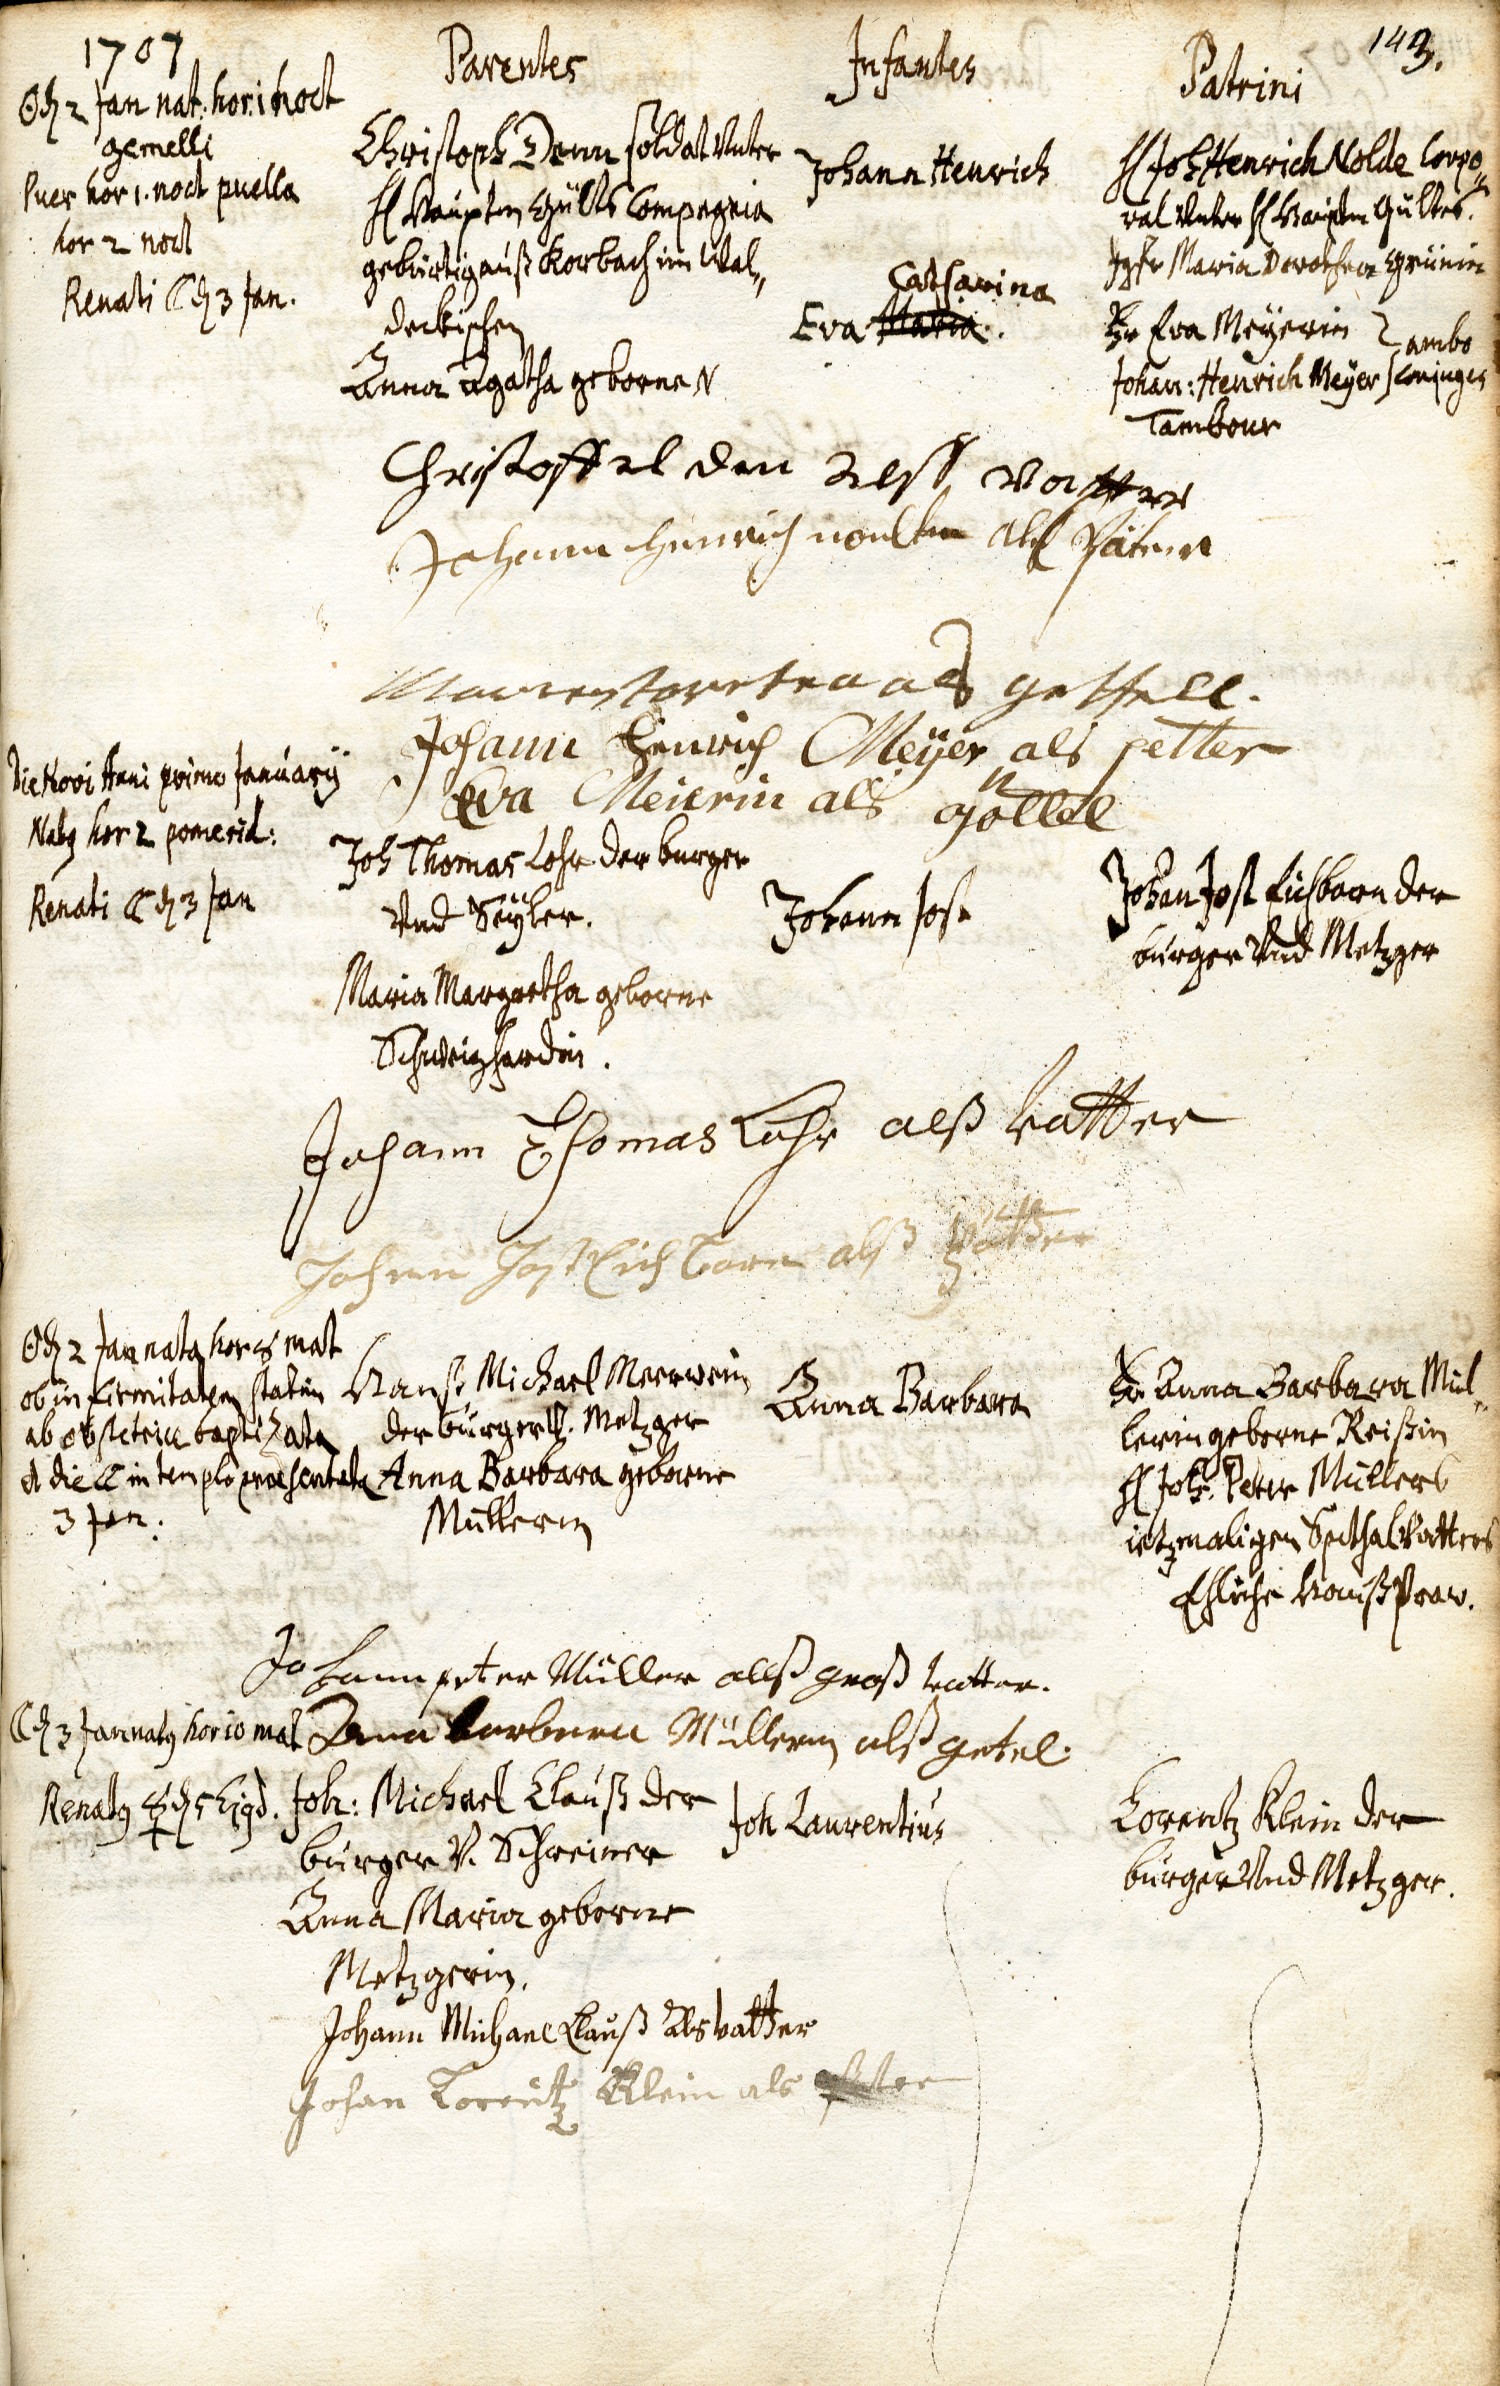 1707
Parentes
Infantes
Patrini
143.
☉ d 2 Jan nat: hor: 1 noct
gemelli
Puer hor 1. noct puella
hor 2 noct
Renati ☾ d 3 Jan.
Christoph Denn soldat Unter
H Hauptm Gülts Compagnia
gebürtig auß Korbach im Wal„
deckischen
Anna Agatha geborne N
Johann Henrich
Catharina
Eva Maria.
H Joh Henrich Nolde Corpo„
ral Unter H Hauptm Gültes.
Jgfr Maria Dorothea Grünin
Fr Eva Meÿerin } ambo
Johan: Henrich Meÿer } conjuges
Tambour
Christoffel den alß Vatter
Johann Henrich noulten alß Pätter
als gettell.
Johann Henrich Meÿer als petter
Eva Meierin als göttel
Die Novi Anni primo Januarÿ
Natg hor 2 pomerid:
Renati ☾ d 3 Jan
Joh Thomas Lohr der burger
Und Seÿler.
Maria Margretha geborne
Schweizhardin.
Johann Jost
Johan Jost Eichborn der
burger Und Metzger
Johann Thomas Lohr alß Vatter
Johann Jost Eichborn alß Pätter
☉ d 2 Jan nata hor 8 mat
ob infirmitatem statim
ab obstetrice baptizata
et die ☾ in templo praesentata
3 Jan:
Hanß Michael Meerwein
der burger V. Metzger
Anna Barbara geborne
Müllerin
Anna Barbara
Fr Anna Barbara Mül„
lerin geborne Reißin
H Joh. Peter Müllers
ietzmaligen Spithal Vatters
Ehliche Hauß Fraw.
Johann peter Müller alß groß vatter.
Anna barbara Müllerin alß getel.
☾ d 3 Jan natg hor 10 mat
Renatg ☿ d 5 Ejgd.
Joh: Michael Clauß der
burger V. Schreiner
Anna Maria geborne
Metzgerin.
Joh Laurentius
Lorentz Klein der
burger Und Metzger.
Johann Michael Clauß als vatter
Johan Lorentz Klein als